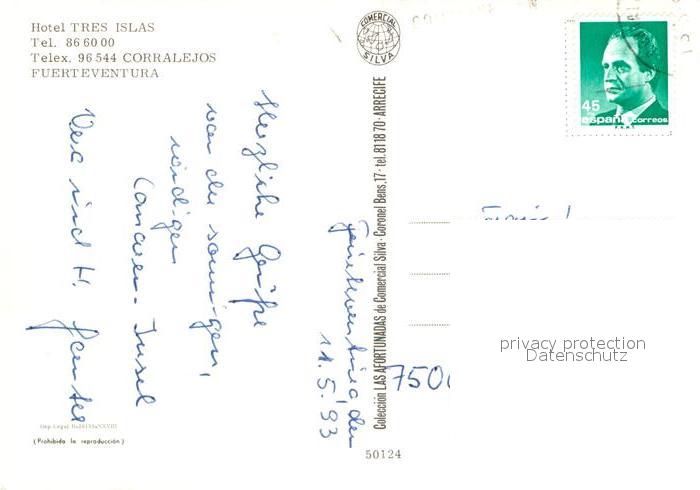 Hotel TRES ISLAS
Tel. 86 60 00
Telex. 96 544 CORRALEJOS
FUERTEVENTURA
COMERCIAL
SILVA
45
españa correos
F.N.M.T.
Fuerteventura, den
11.5.93
Herzliche Grüße
von der sonnigen,
windigen
Canaren-Insel
Vera und H.
Colección LAS AFORTUNADAS de Comercial Silva - Coronel Bens, 17 - tel. 81 18 70 - ARRECIFE
Familie
750
privacy protection
Datenschutz
(Prohibida la reproducción)
50124